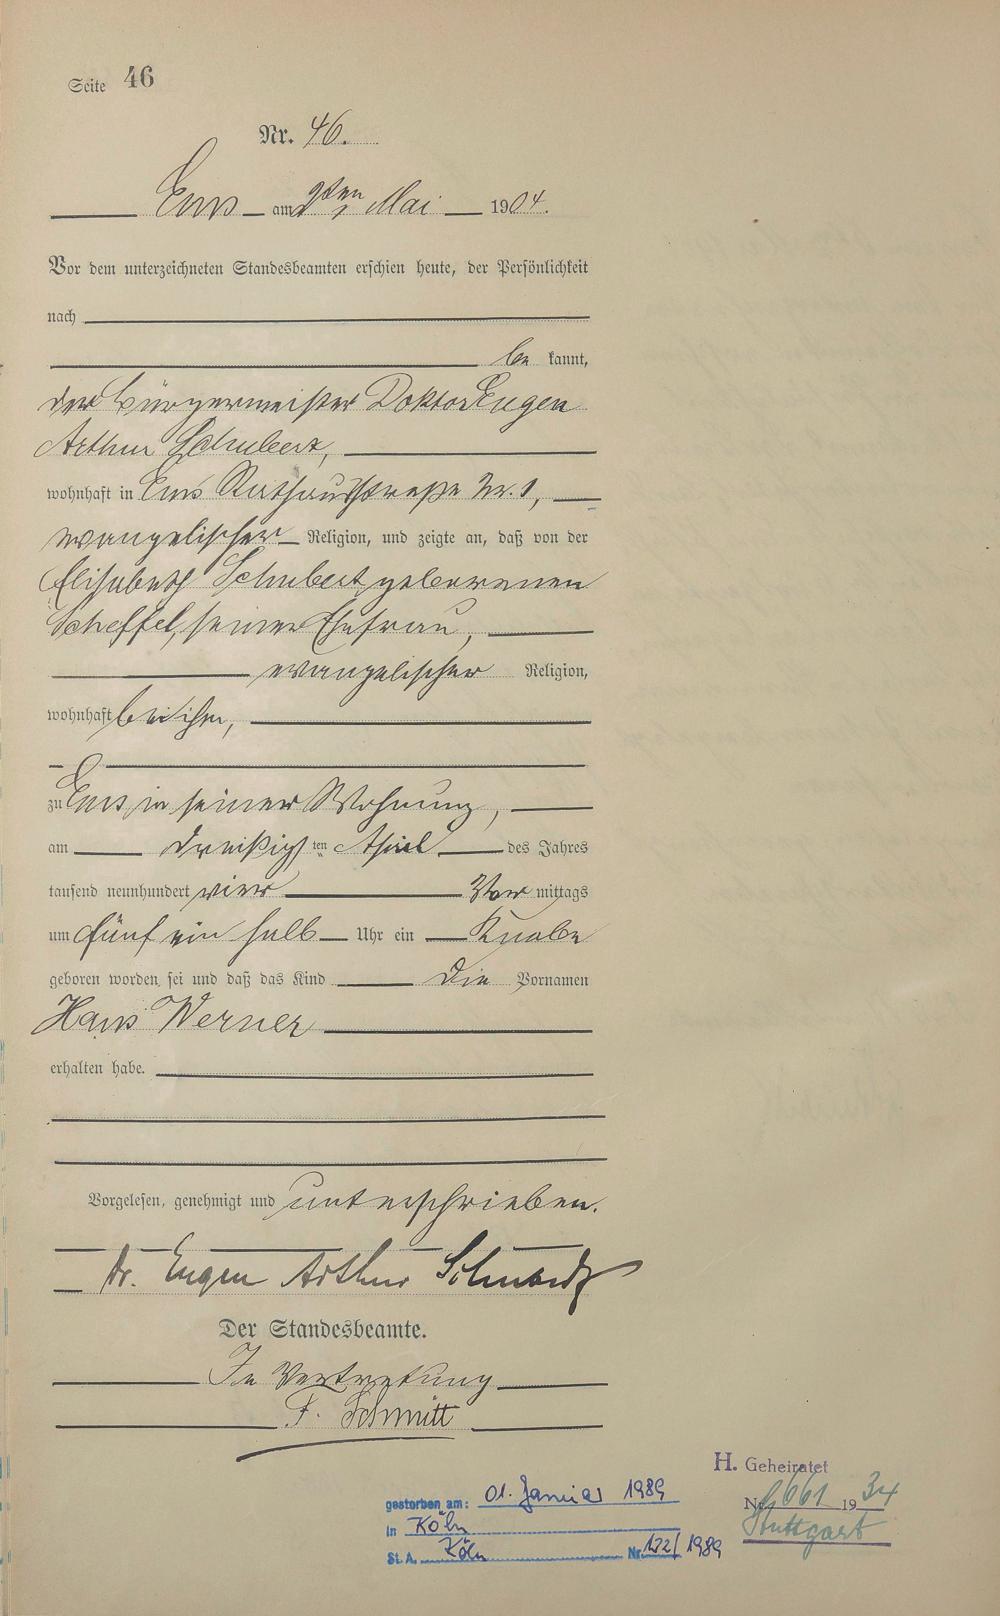 Seite 46
Nr. 46.
Ems am 2ten Mai 1904.
Vor dem unterzeichneten Standesbeamten erschien heute, der Persönlichkeit
nach
be kannt,
der Bürgermeister Doktor Eugen
Arthur Schubert,
wohnhaft in Ems Rathausstraße Nr. 1,
evangelischer Religion, und zeigte an, daß von der
Elisabeth Schubert geborenen
Scheffel, seiner Ehefrau,
evangelischer Religion,
wohnhaft bei ihm,
zu Ems in seiner Wohnung,
am dreißigsten April des Jahres
tausend neunhundert vier Vor mittags
um fünf ein halb Uhr ein Knabe
geboren worden sei und daß das Kind die Vornamen
Hans Werner
erhalten habe.
Vorgelesen, genehmigt und unterschrieben.
Dr. Eugen Arthur Schubert
Der Standesbeamte.
In Vertretung
F. Schmitt
H. Geheiratet
Nr. 661 1934
Stuttgart
gestorben am: 01. Januar 1989
in Köln
St. A. Köln Nr. 122/1989